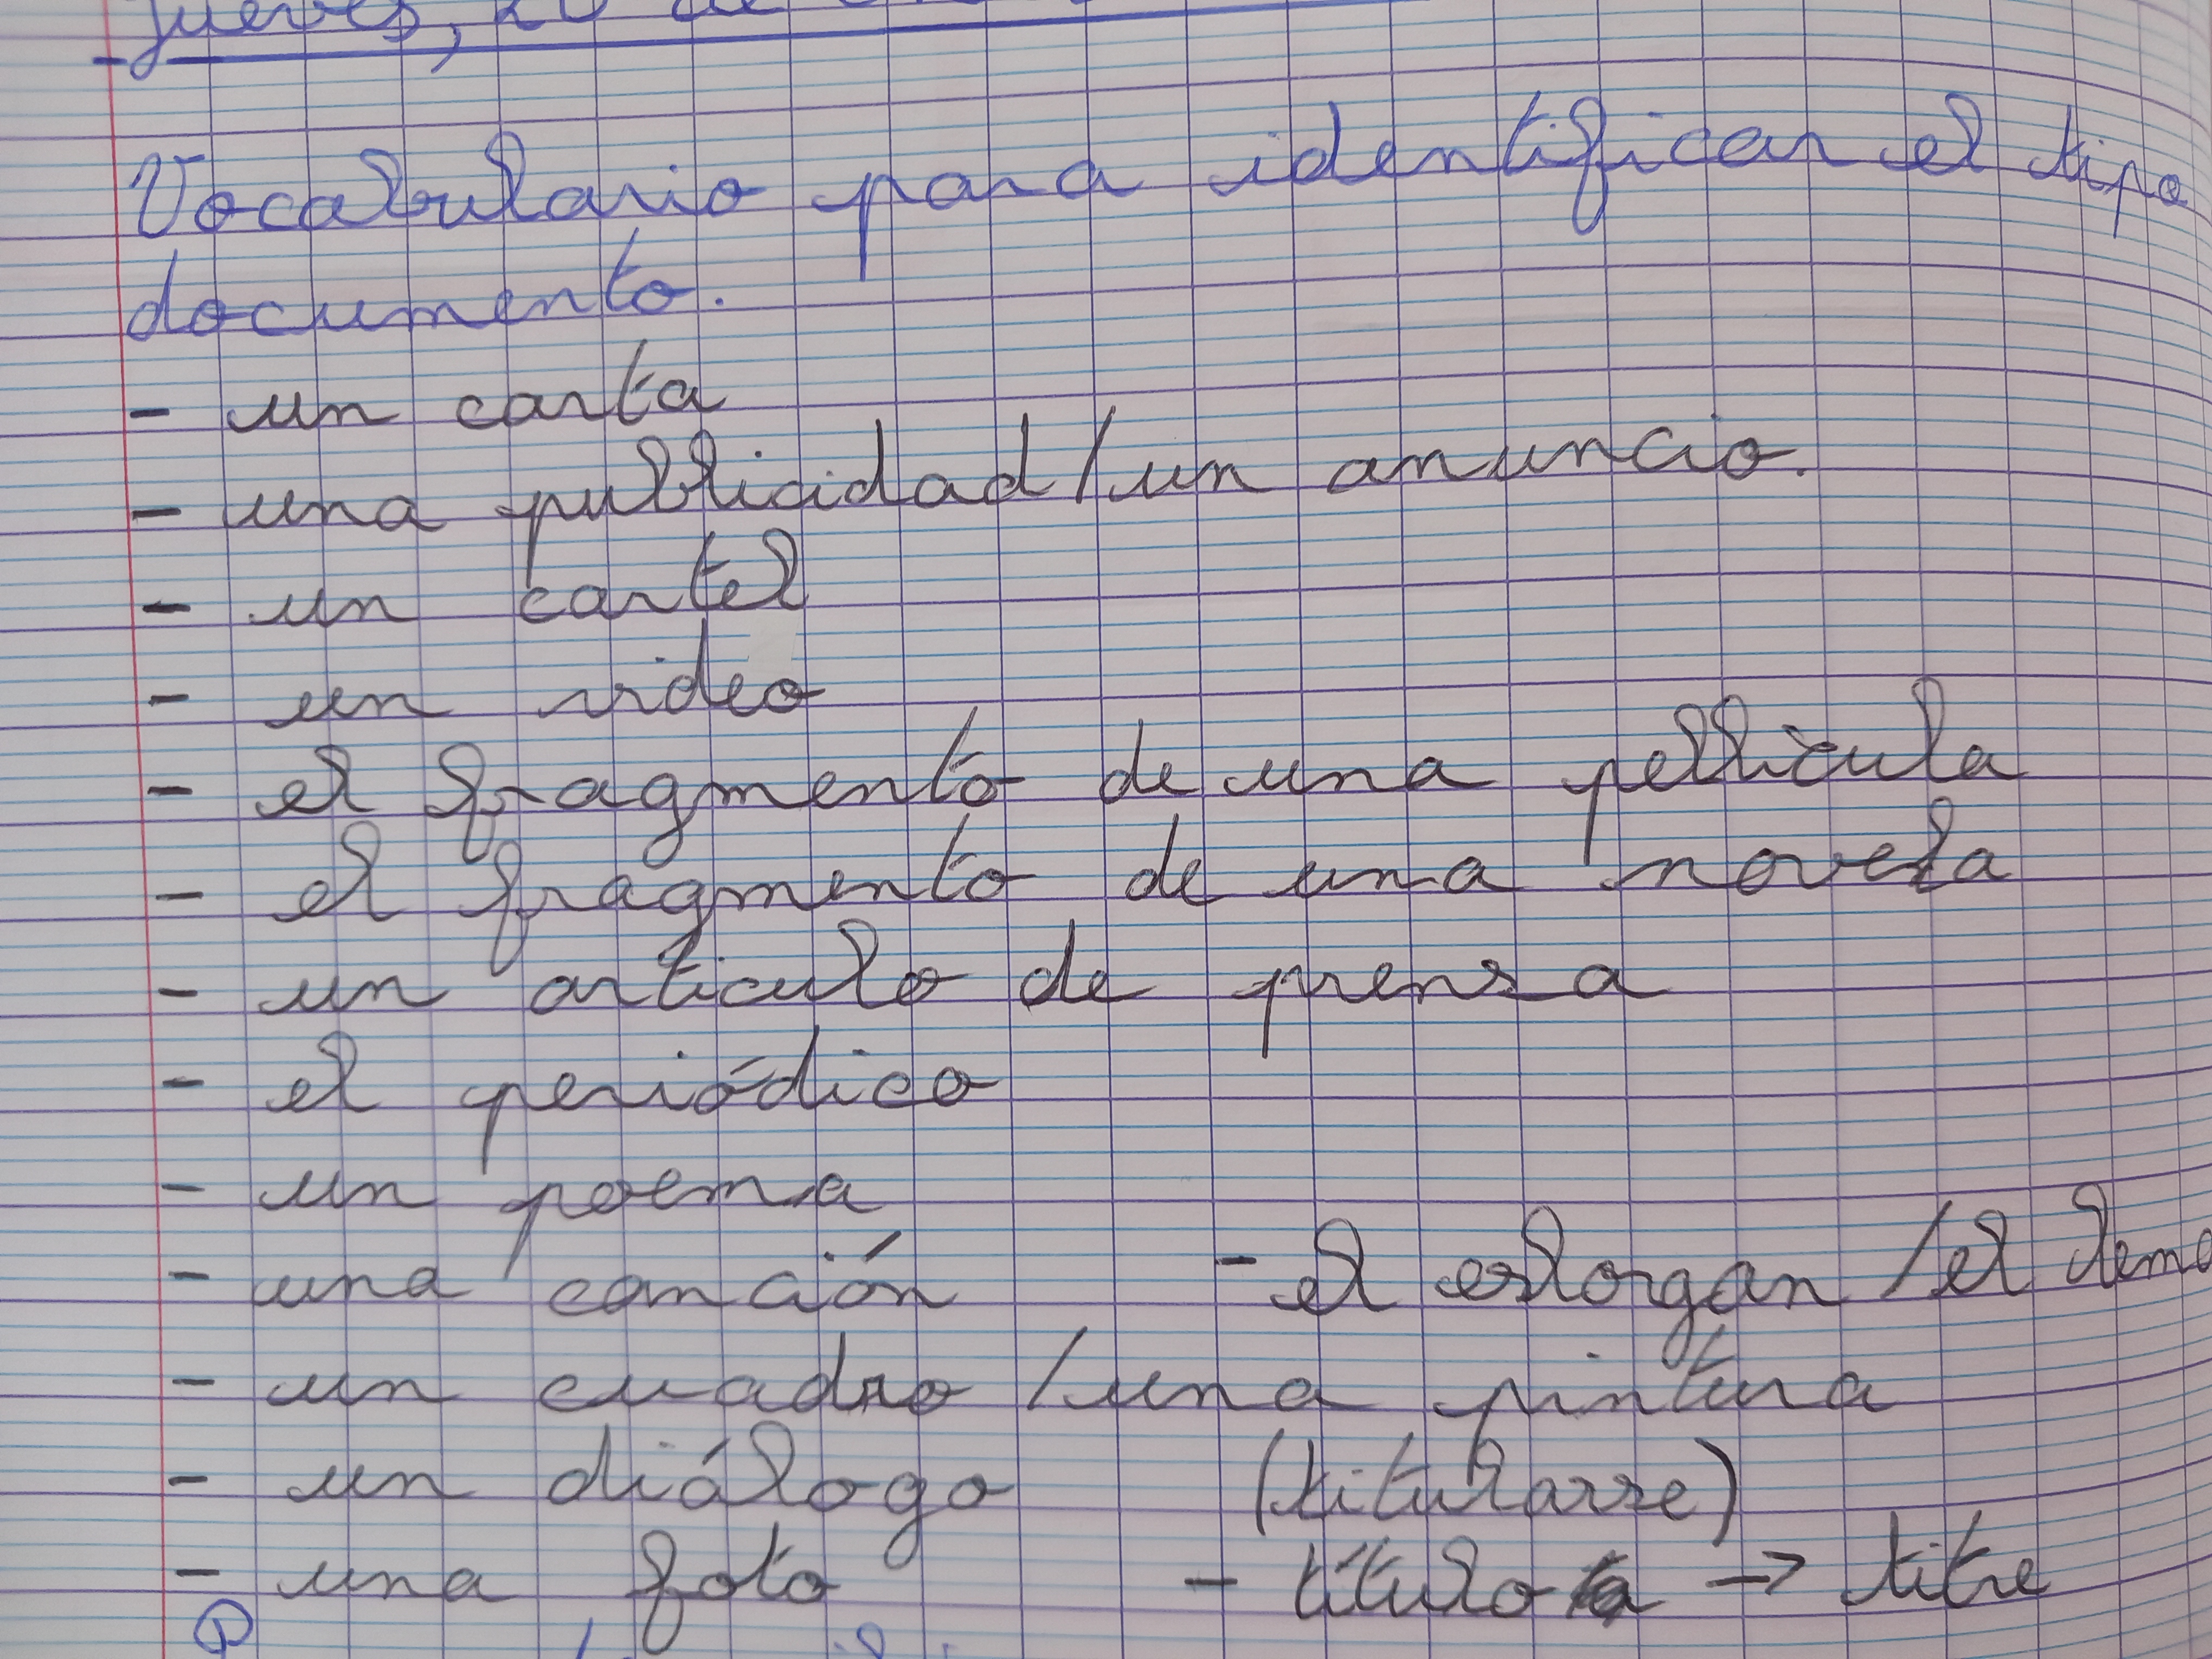 jueves, 20 de
Vocabulario para identificar el tipo
documento.
- un carta
- una publicidad/un anuncio.
- un cartel
- un video
- el fragmento de una pellicula
- el fragmento de una novela
- un articulo de prensa
- el periódico
- un poema
- una canción - el eslorgan /el lema
- un cuadro /una pintura
- un diálogo (titularse)
- una foto - título -> titre